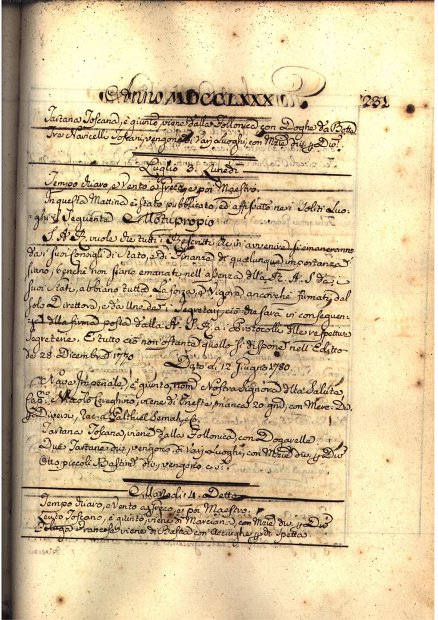 Anno MDCCLXXX 231
Tartana Toscana, è giunto, viene dalla Follonica, con Doghe da Botte
Tre Navicelli Toscani, vengono di Varj Luoghi, con Mcie div. p Div.
Luglio 3. Lunedì
Tempo chiaro, e Vento a Greco, e poi Maestro.
In questa Mattina è stato pubblicato, ed affissato nei Soliti Luo-
ghi il Seguente Motuproprio
S. A. R. vuole che tutti i Rescritti che in avvenire si emaneranno
dai suoi Consigli di Stato, e di Finanze di qualunque importanza
siano, benchè non siano emanati nell'assenza della R. A. S. da
suoi Stati, abbiano tutta la forza, e Vigore, ancorchè firmati dal
solo Direttore, e da uno dei Segretarj, e ciò che sarà in conseguen-
za della firma posta dalla A. S. R. a i Protocolli delle respettive
Segreterie. E tutto ciò non ostante quello si dispone nell'Editto
de 28. Dicembre 1770. Dato a 12 Giugno 1780.
Nave Imperiale, è giunto, nom. Nostra Signora della Salute
Cap. Niccolò viene di Trieste, manca 20 gni, con Merc. Do-
ga Diversi, Rac. a
Tartana Toscana, viene dalla Follonica, con Dogarelle
Due Tartane div. vengono di Varj Luoghi, con Mcie div. p Div.
Otto piccoli Bastim. div. vengono c. s.
Martedì 4. Detto
Tempo chiaro, e Vento a Greco, e poi Maestro
Leuto Toscano, è giunto, viene di Marciana, con Mcie div. p Div.
Feluga Francese viene di Bastia con Acciughe p di Spetta